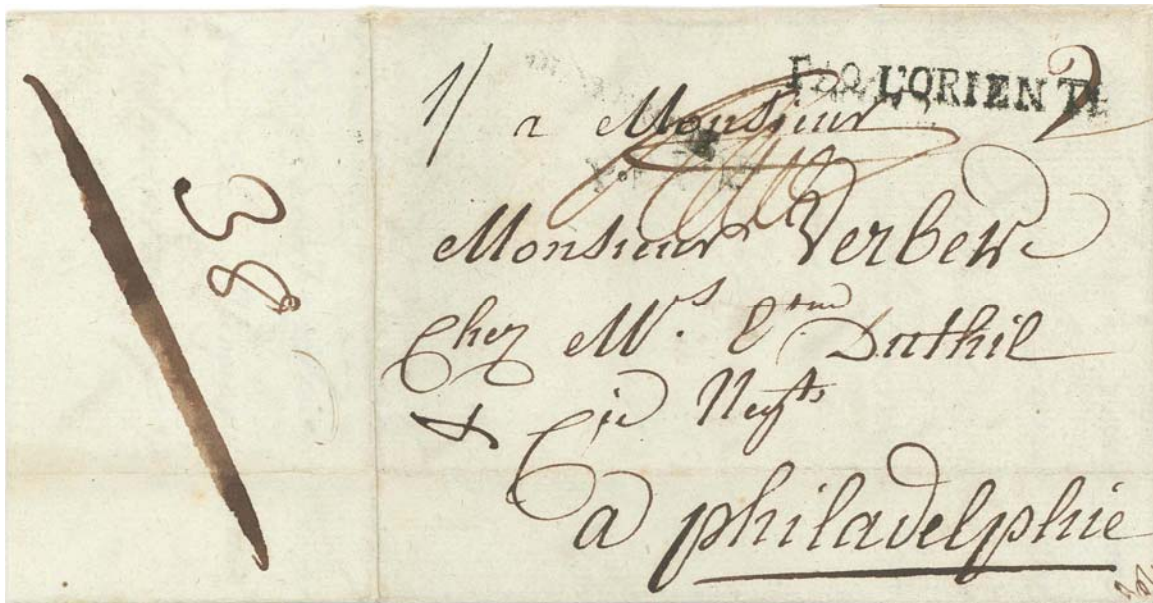 38
P&Q L'ORIENT
1/ a Monsieur
Monsieur Verbew
Chez Mrs. Duthil
& Cie Negts
a philadelphie